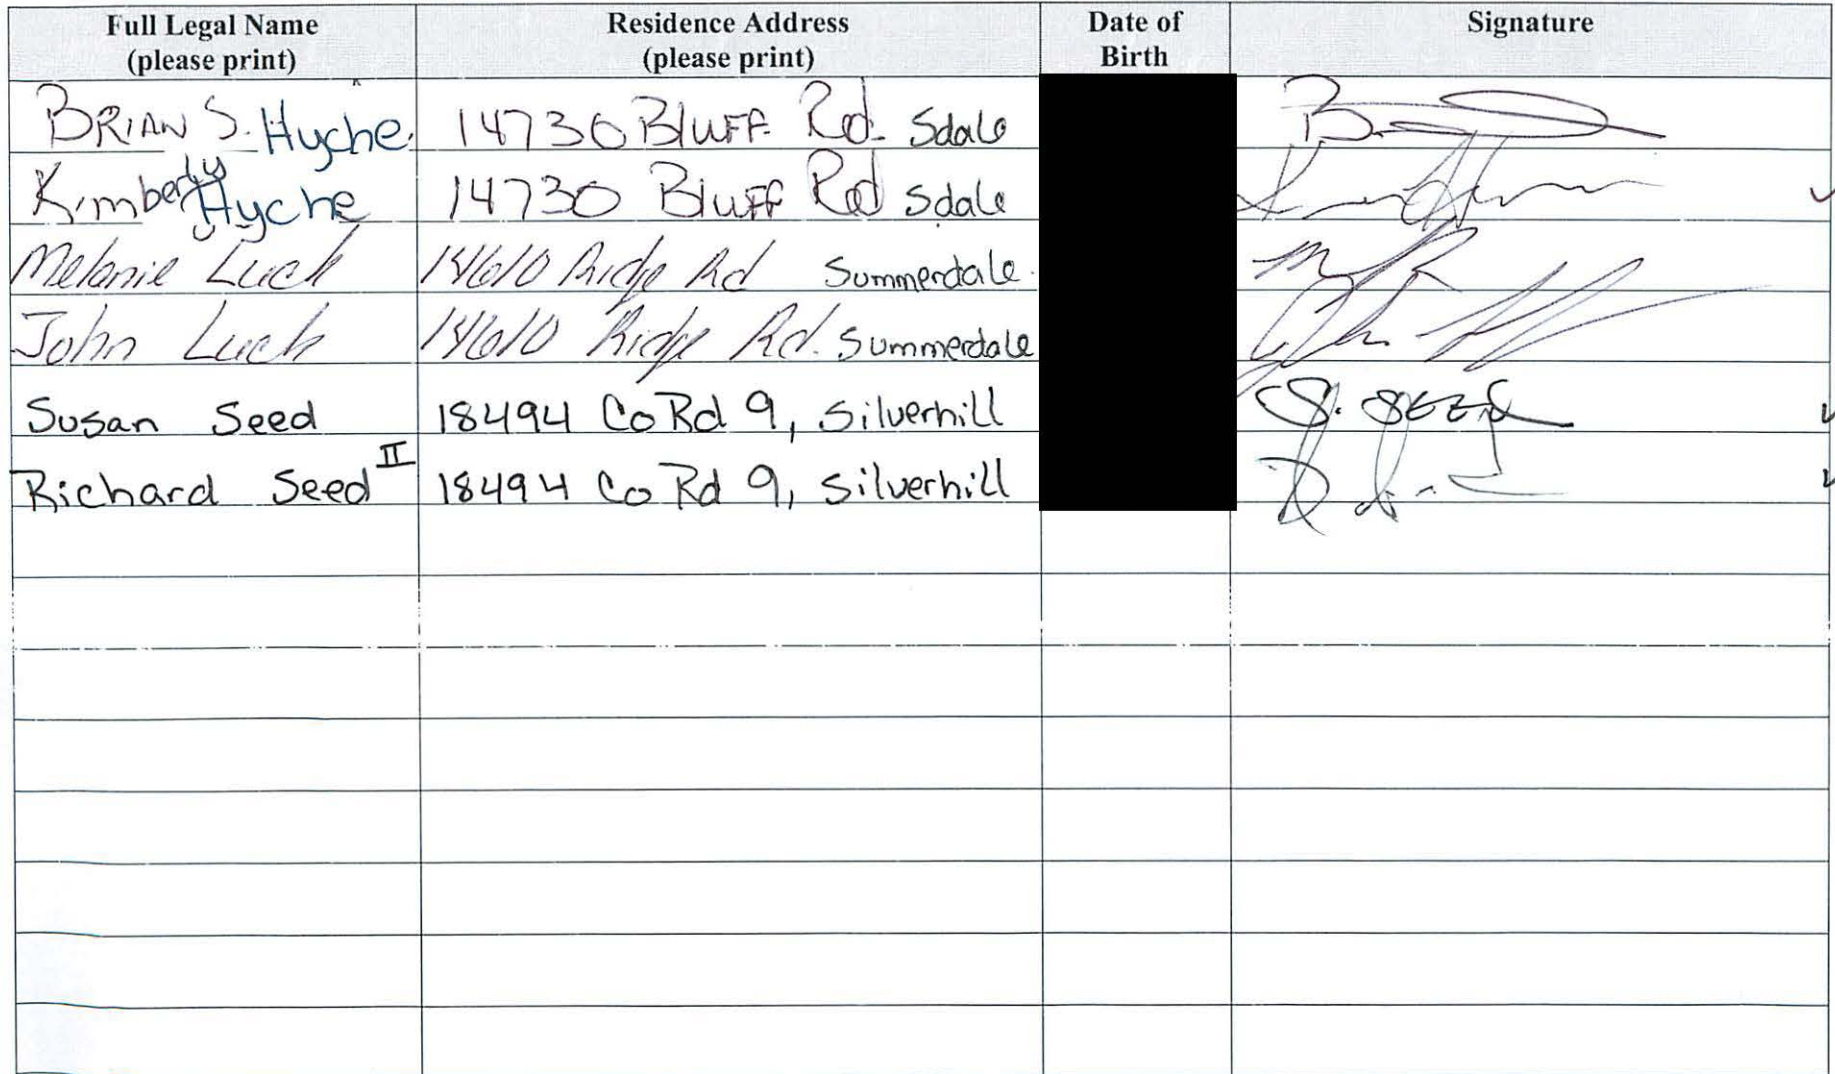 Full Legal Name (please print) Residence Address (please print) Date of Birth Signature
BRIAN S. Hyche 14730 Bluff Rd. Sdale
Kimberly Hyche 14730 Bluff Rd Sdale
Melanie Luck 14610 Ridge Rd Summerdale
John Luck 14610 Ridge Rd. Summerdale
Susan Seed 18494 Co Rd 9, Silverhill S. Seed
Richard Seed II 18494 Co Rd 9, Silverhill